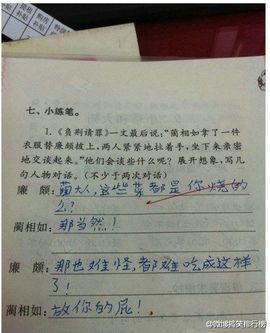 七、小练笔。
1.《负荆请罪》一文最后说："蔺相如拿了一件
衣服替廉颇披上，两人紧紧地拉着手，坐下来亲密
地交谈起来。"他们会谈些什么呢？展开想象，写几
句人物对话。(不少于两次对话)
廉 颇：蔺大人，这些菜都是你烧的
么？
蔺相如：那当然！
廉 颇：那也难怪，都难吃成这样
了！
蔺相如：放你的屁！
@微博搞笑排行榜